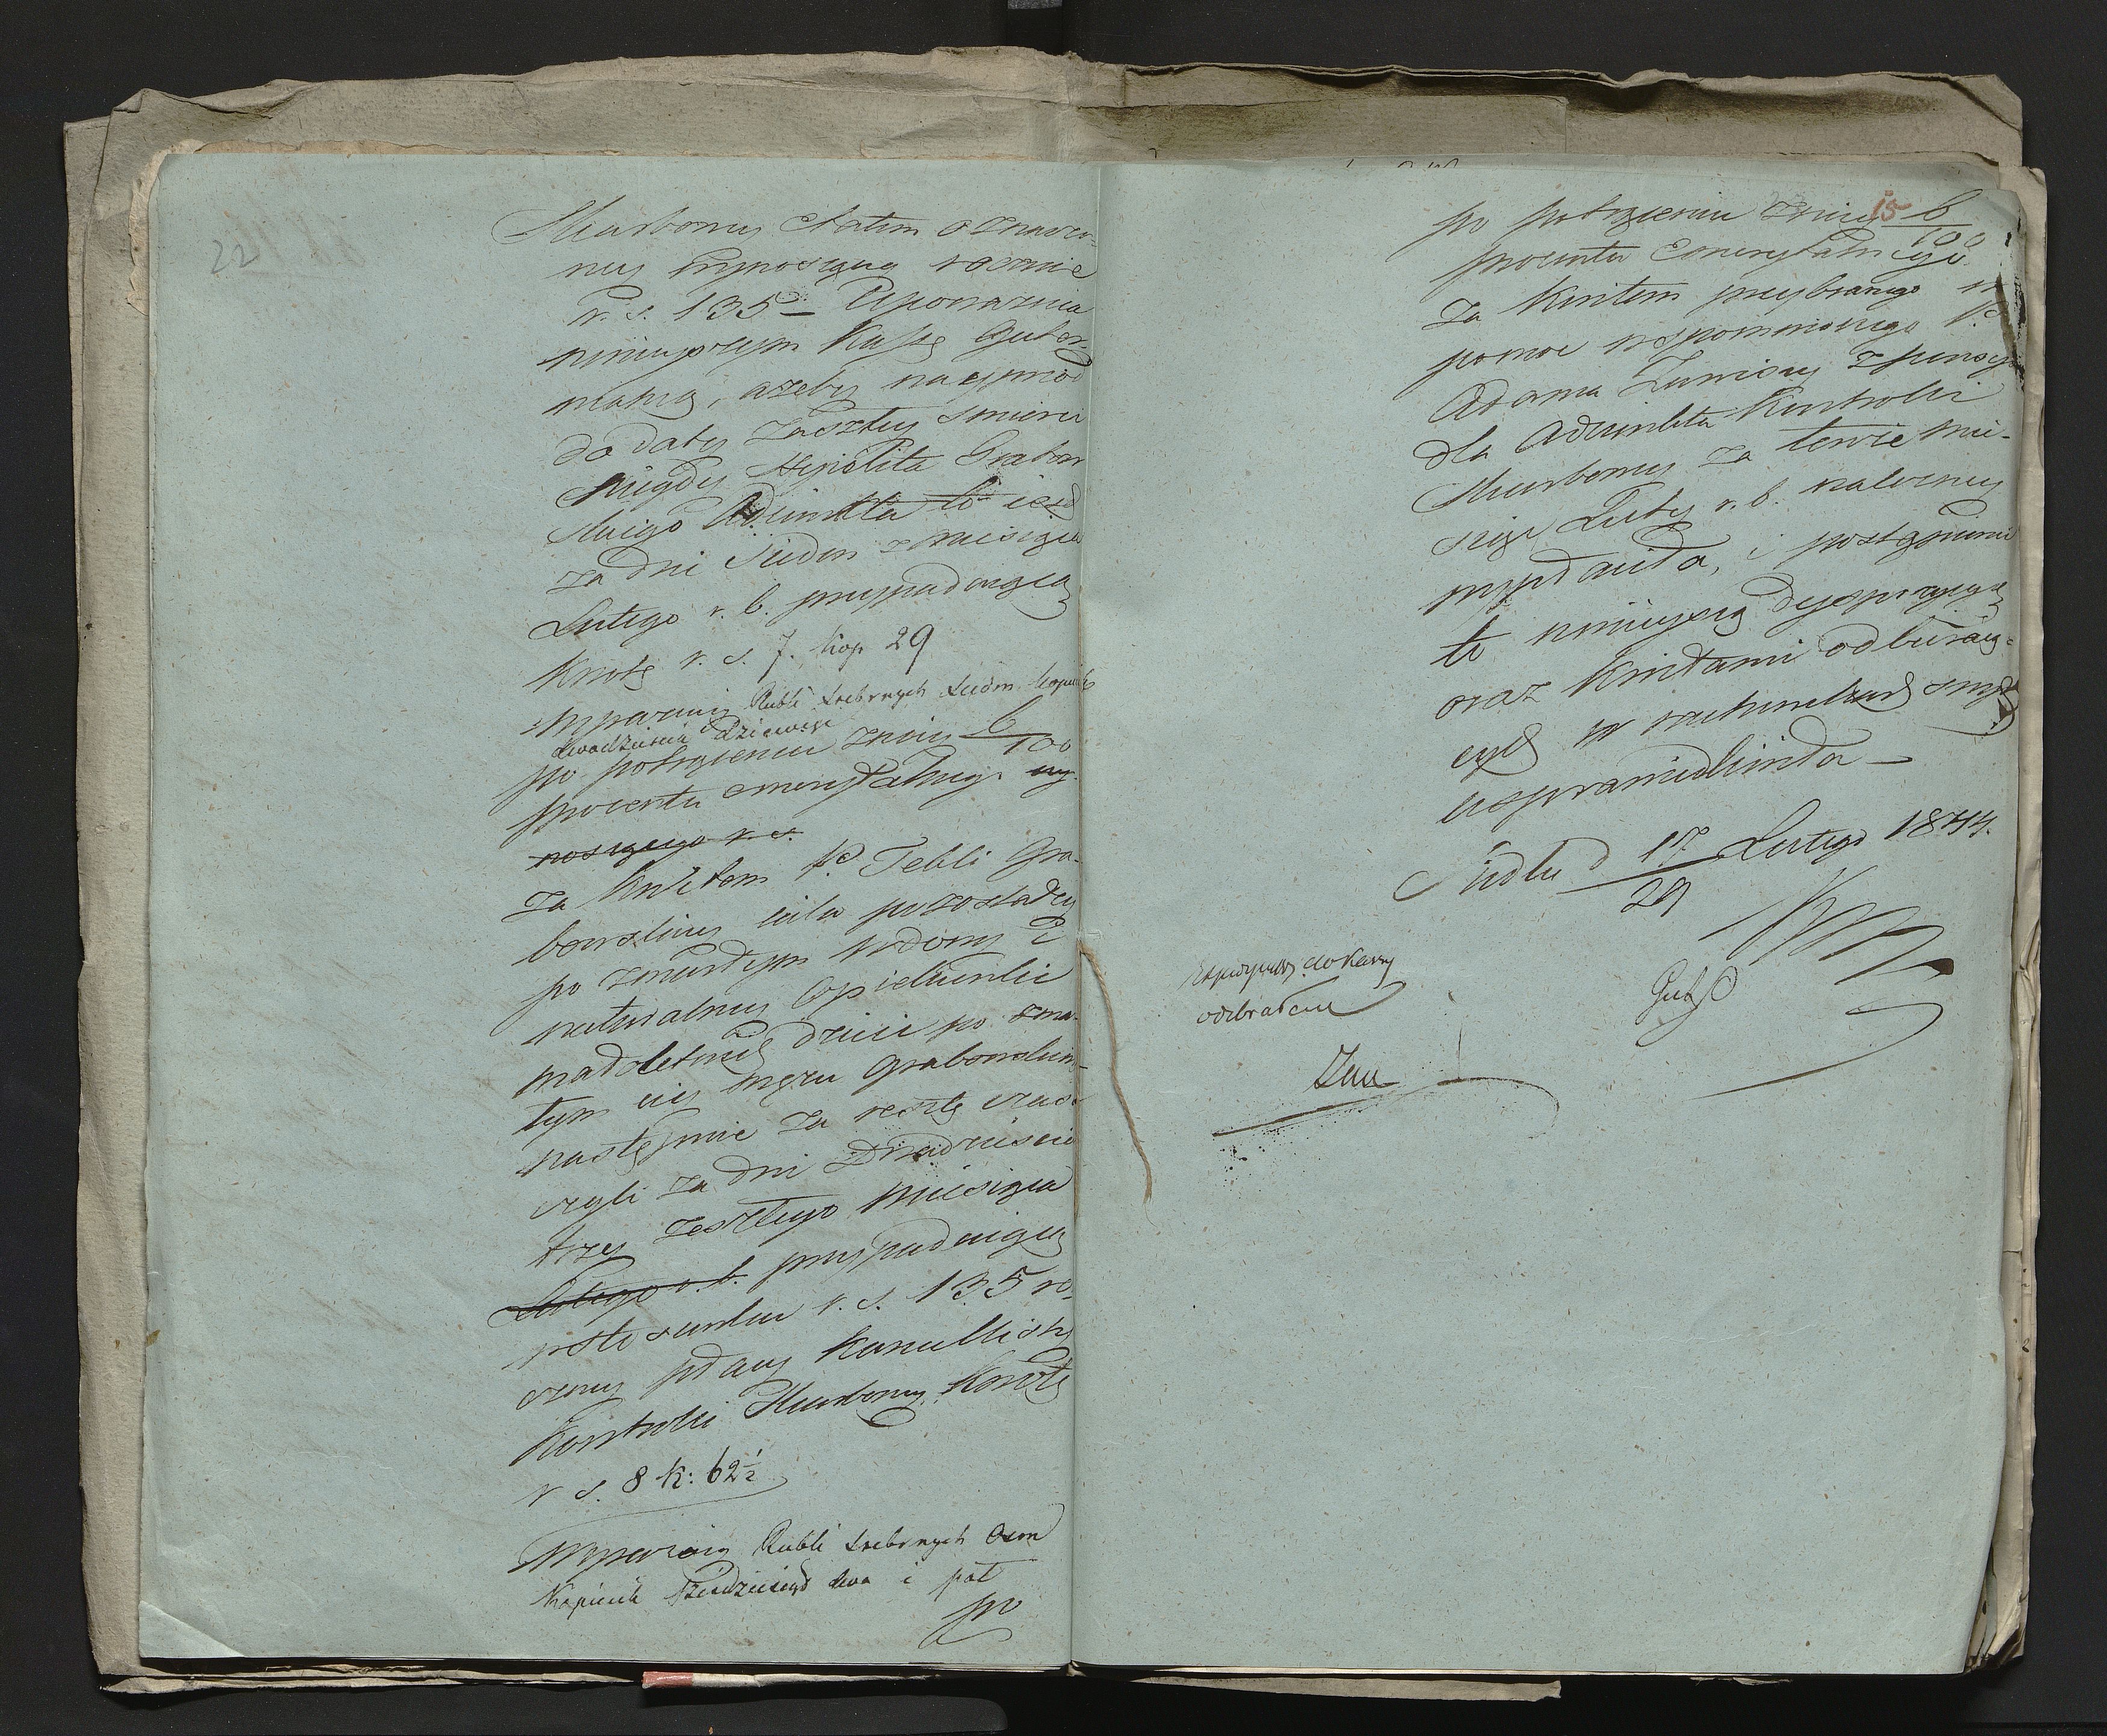 22
Skarbowey Etatem oznaczo-
ney wynoszącą rocznie
r. s. 135 – Upoważnia
niniejszym Kassę Guber-
nialną, ażeby nayprzód
do daty zaszłey śmierci
niegdy Hipolita Grabow
skiego Adjunkta to iest
za dni siedm z miesiąca
Lutego r. b. przypadaiącą
Kwotę r. s. 7. kop 29
wyraźniey Rubli srebrnych siedm kopiejek
dwadzieścia dziewięć
po potrąceniu z niey 6/100
procentu emerytalnego wy-
noszącego r. s.
za kwitem P. Tekli Gra-
bowskiey iako pozostałey
po zmarłym wdowy i
naturalney Opiekunki
małoletnich dzieci po zmar-
łym iey mężu Grabowskim
następnie za resztę czasu
czyli za dni Dwadzieścia
trzy zeszłego miesiąca
Lutego r. b. przypadaiącą
w stosunku r. s. 135 ro-
czney płacy Kancellisty
Kontroli Skarbowey Kwotę
r s. 8 k: 62½
Wyraźniey Rubli srebrnych Osm
Kopiejek sześćdziesiąt dwa i pół
po
15
po potrąceniu z niey 6/100
procentu emerytalnego
za kwitem przybranego w
pomoc wspomnionego P.
Adama z pensyi
dla Adjunkta Kontroli
Skarbowey za tenże mie-
siąc Luty r. b. należney
wypłaciła, i postąpienie
to niniejszą dyspozycyą
oraz kwitami odbieraią-
cych w rachunkach swych
usprawiedliwiła –
Siedlce d 17/29 Lutego 1844.
Gub
Expedycyą do Kassy
odebrałem